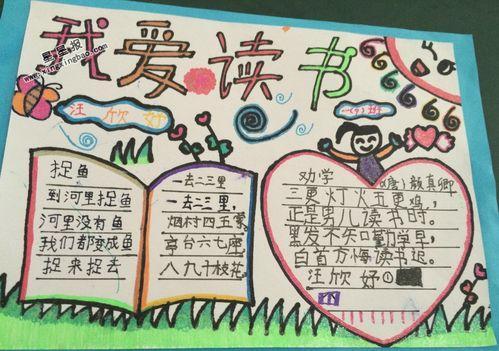 我爱读书
星星报
www.xingxingbao.com
汪欣妤
一(9)班
捉鱼
到河里捉鱼
河里没有鱼
我们都变成鱼
捉来捉去
一去二三里
一去二三里,
烟村四五家
亭台六七座
八九十枝花。
劝学
(唐)颜真卿
三更灯火五更鸡,
正是男儿读书时。
黑发不知勤学早,
白首方悔读书迟。
汪欣妤